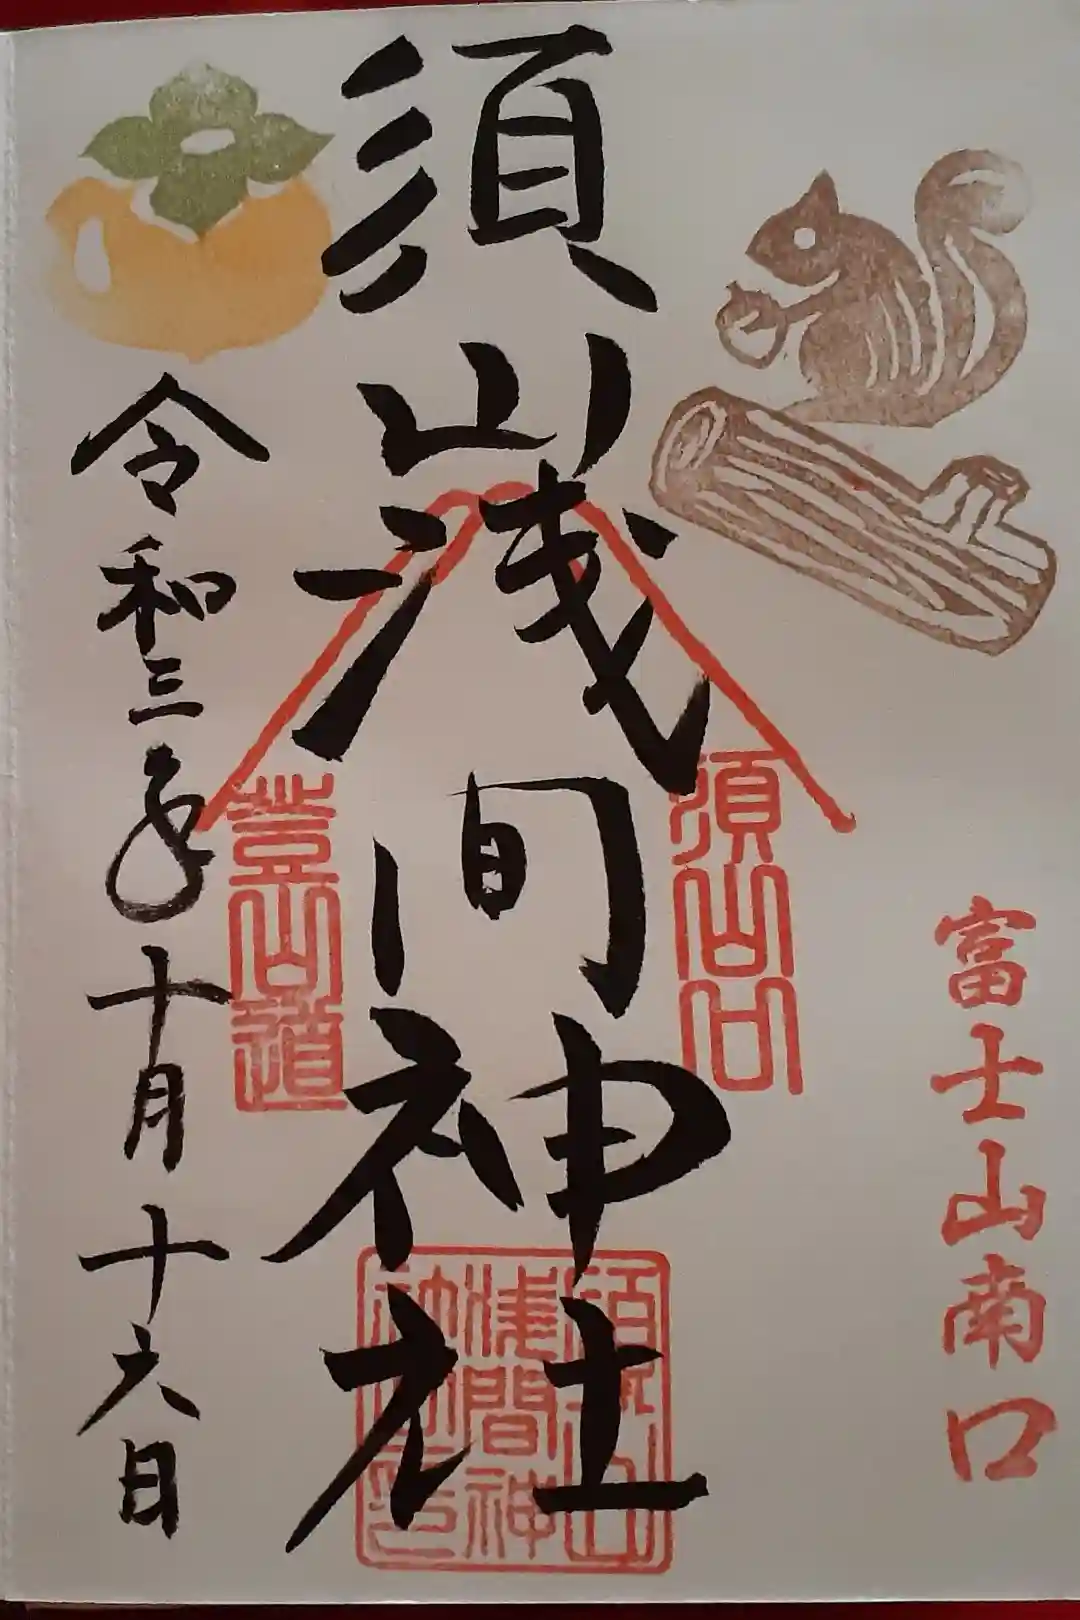 富士山南口
須山口
須山浅间神社
須山浅間神社印
登山道
令和三年十月十六日